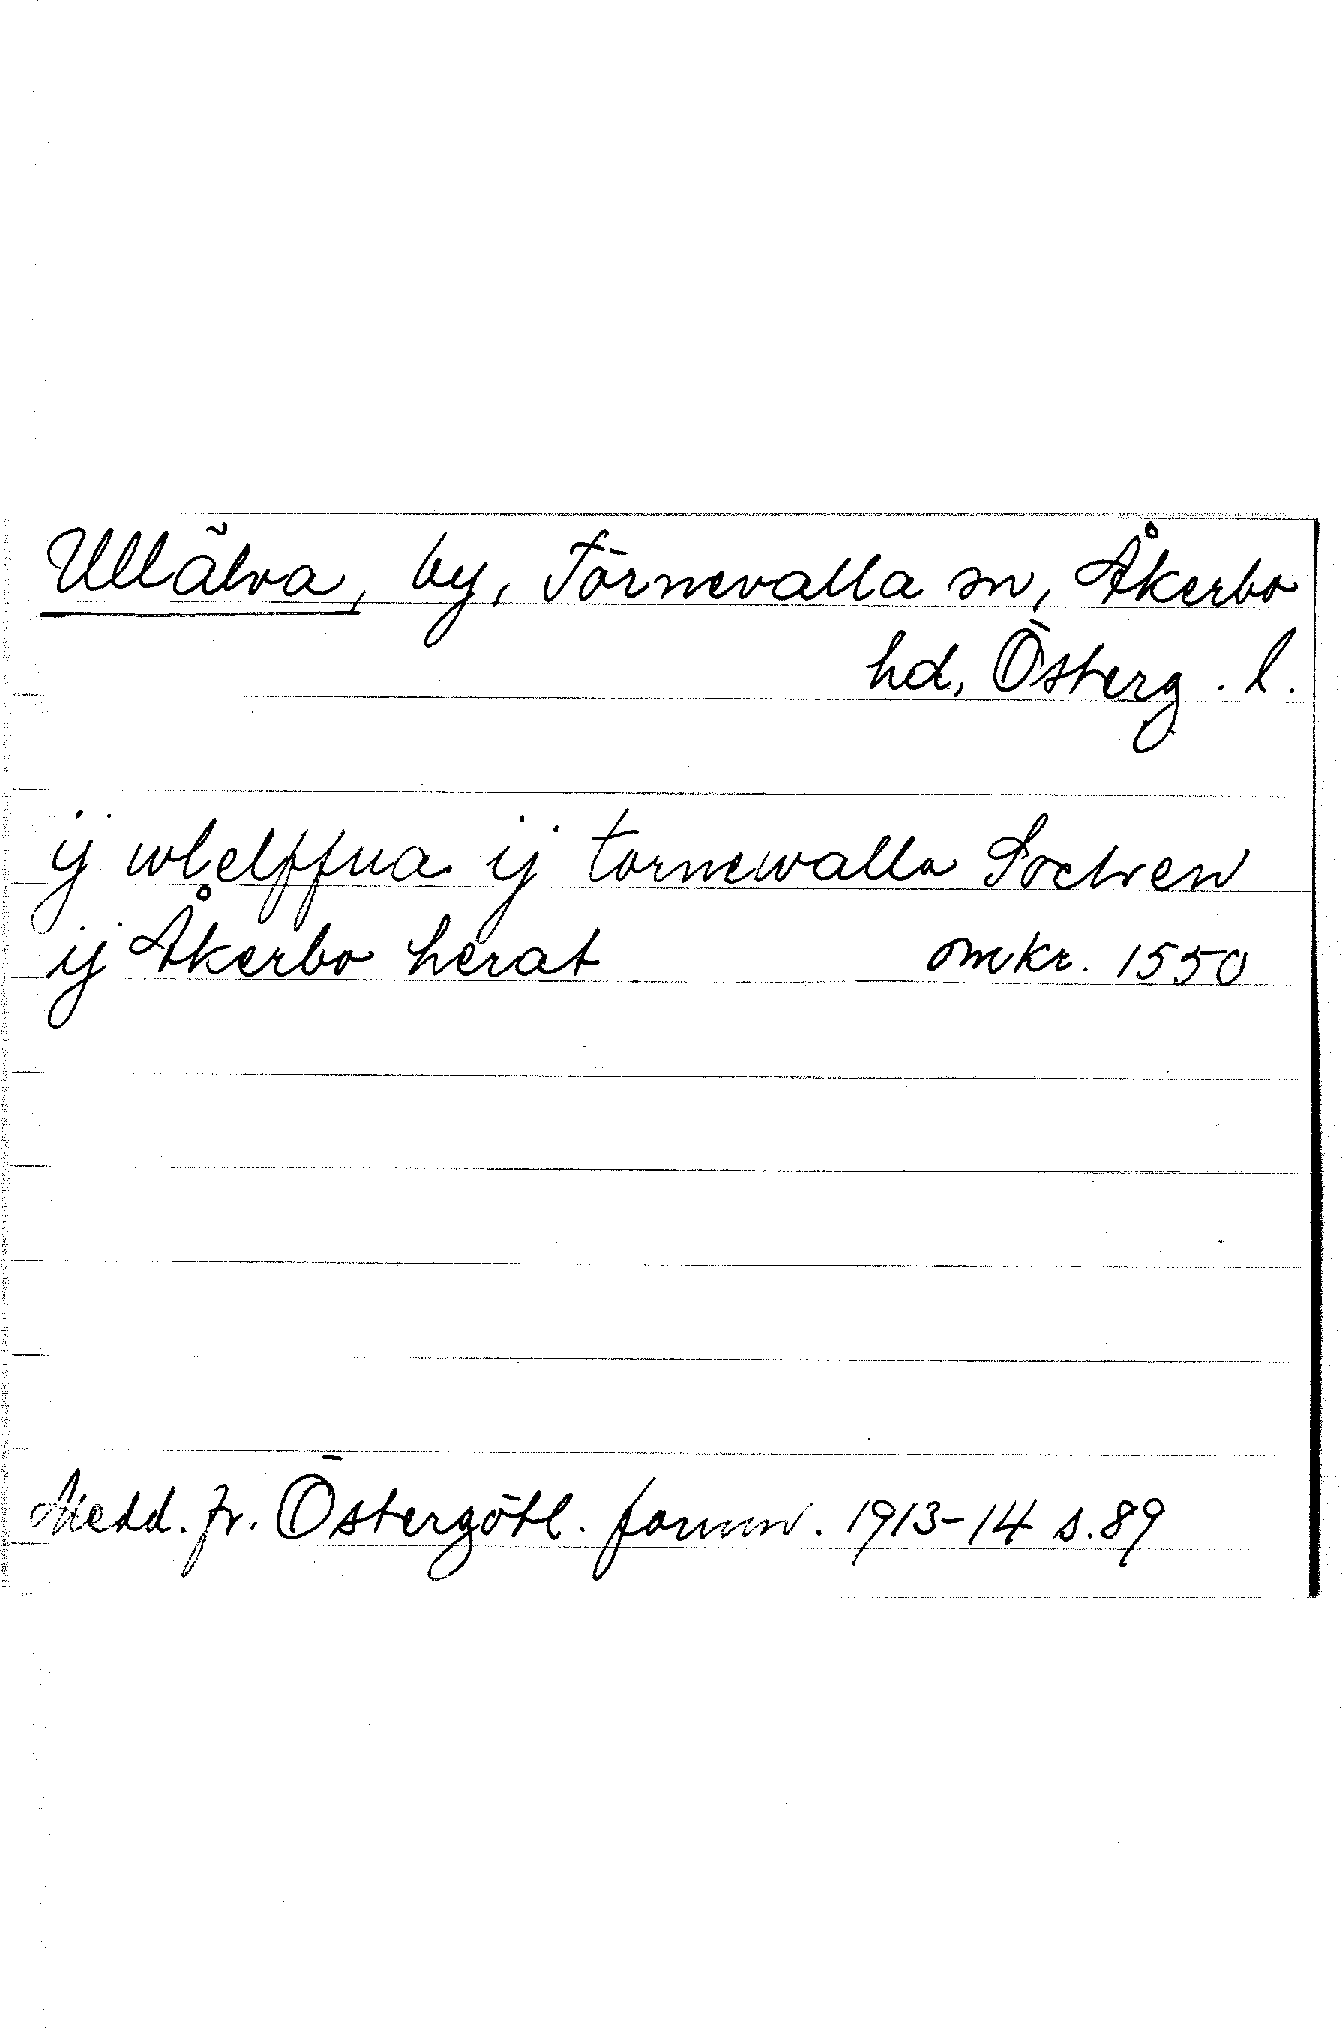 Ullälva, by, Törnevalla sn, Åkerbo
hd, Österg. l.
ij wlelffua ij tornewalla Sochren
ij Åkerbo herat omkr. 1550
Medd. fr. Östergötl. fornm. 1913-14 s. 89